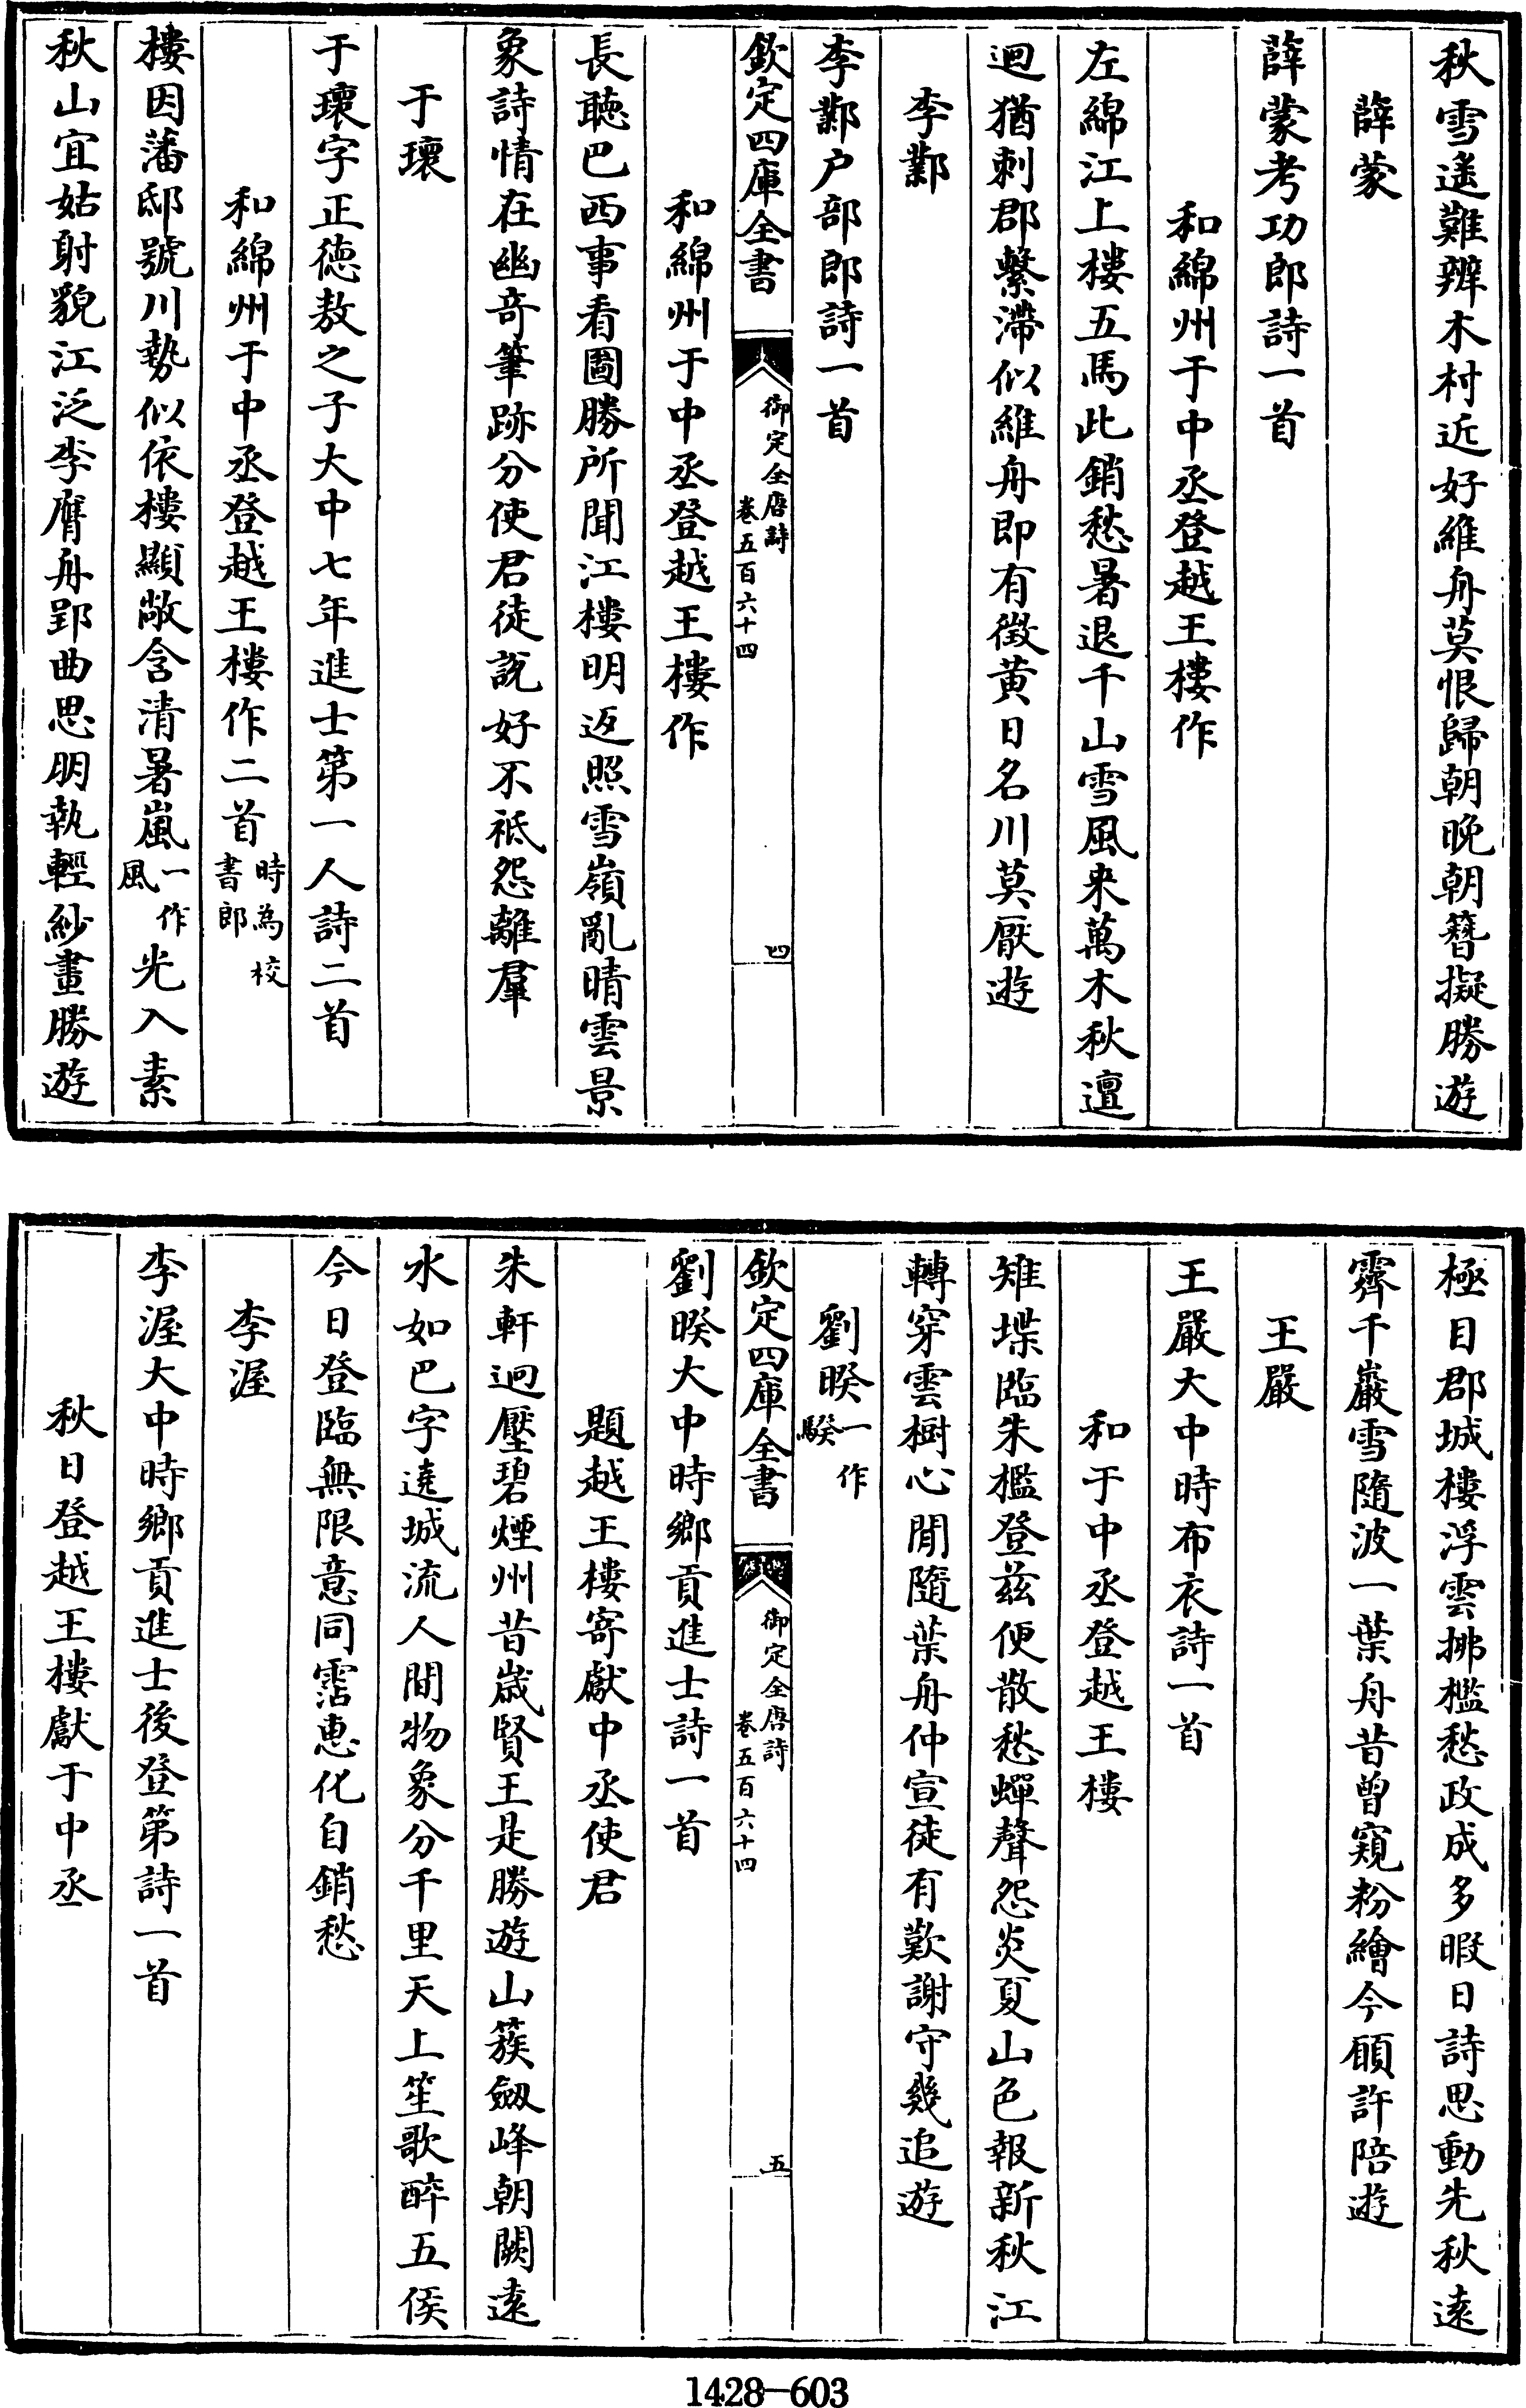 秋雪遙難辨木村近好維舟莫恨歸朝晚朝簪擬勝遊
薛蒙
薛蒙考功郎詩一首
和綿州于中丞登越王樓作
左綿江上樓五馬此銷愁暑退千山雪風来萬木秋邅
迴猶刺郡繫滯似維舟即有徵黃日名川莫厭遊
李鄴
李鄴户部郎詩一首
欽定四庫全書
御定全唐詩
卷五百六十四
四
和綿州于中丞登越王樓作
長聽巴西事看圖勝所聞江樓明返照雪嶺亂晴雲景
象詩情在幽竒筆跡分使君徒説好不祗怨離羣
于瓌
于瓌字正徳敖之子大中七年進士第一人詩二首
和綿州于中丞登越王樓作二首時為校書郎
樓因藩邸號川勢似依樓顯敞含清暑嵐一作風光入素
秋山宜姑射貌江泛李膺舟郢曲思朋執輕紗畫勝遊
極目郡城樓浮雲拂檻愁政成多暇日詩思動先秋逺
霽千巖雪隨波一葉舟昔曾窺粉繪今願許陪遊
王嚴
王嚴大中時布衣詩一首
和于中丞登越王樓
雉堞臨朱檻登兹便散愁蟬聲怨炎夏山色報新秋江
轉穿雲樹心閒隨葉舟仲宣徒有歎謝守幾追遊
劉暌一作騤
欽定四庫全書
御定全唐詩
卷五百六十四
五
劉暌大中時鄉貢進士詩一首
題越王樓寄獻中丞使君
朱軒迥壓碧煙州昔嵗賢王是勝遊山簇劔峰朝闕逺
水如巴字遶城流人間物象分千里天上笙歌醉五侯
今日登臨無限意同霑惠化自銷愁
李渥
李渥大中時鄉貢進士後登第詩一首
秋日登越王樓獻于中丞
1428—603